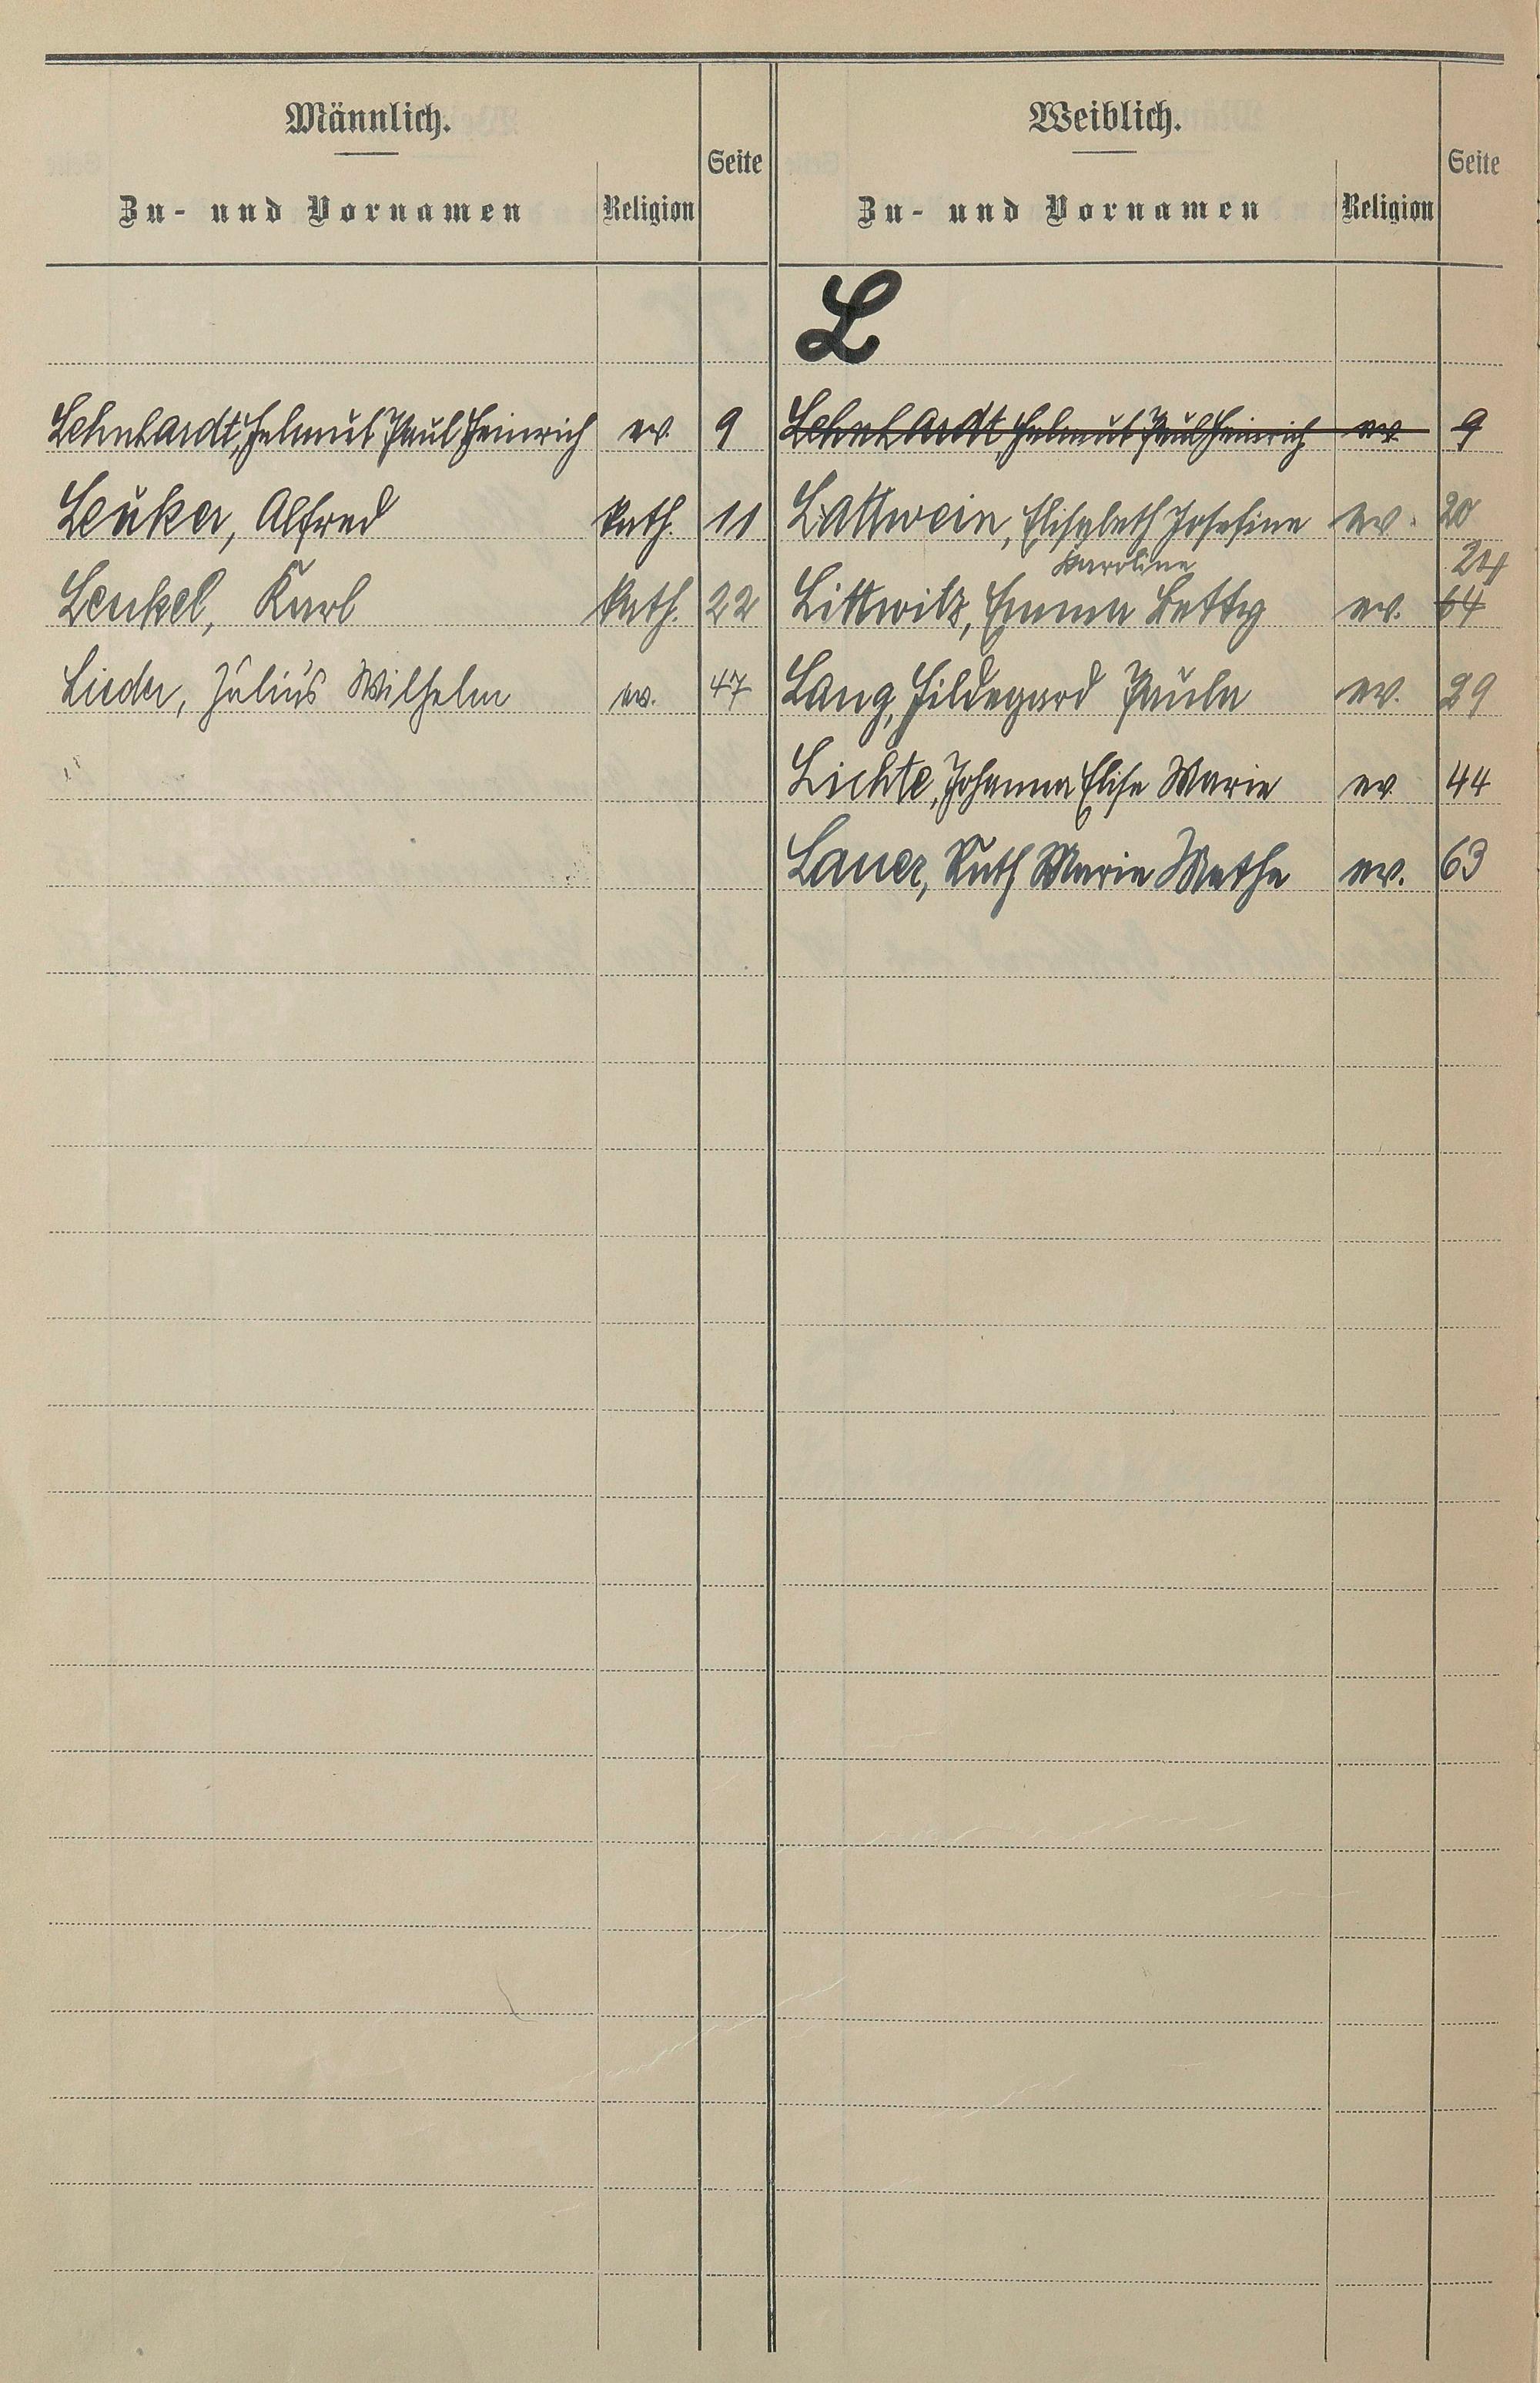 Männlich.
Zu- und Vornamen Religion Seite
Weiblich.
Zu- und Vornamen Religion Seite
L
Lehnhardt, Helmut Paul Heinrich ev. 9
Leuker, Alfred kath. 11
Lenkel, Karl kath. 22
Lieder, Julius Wilhelm ev. 47
Lehnhardt, Helmut Paul Heinrich ev. 9
Lattwein, Elisabeth Josefine ev. 20
Karoline 24
Littwitz, Emma Betty ev. 64
Lang, Hildegard Paula ev. 29
Lichte, Johanna Elise Marie ev. 44
Lauer, Ruth Marie ev. 63